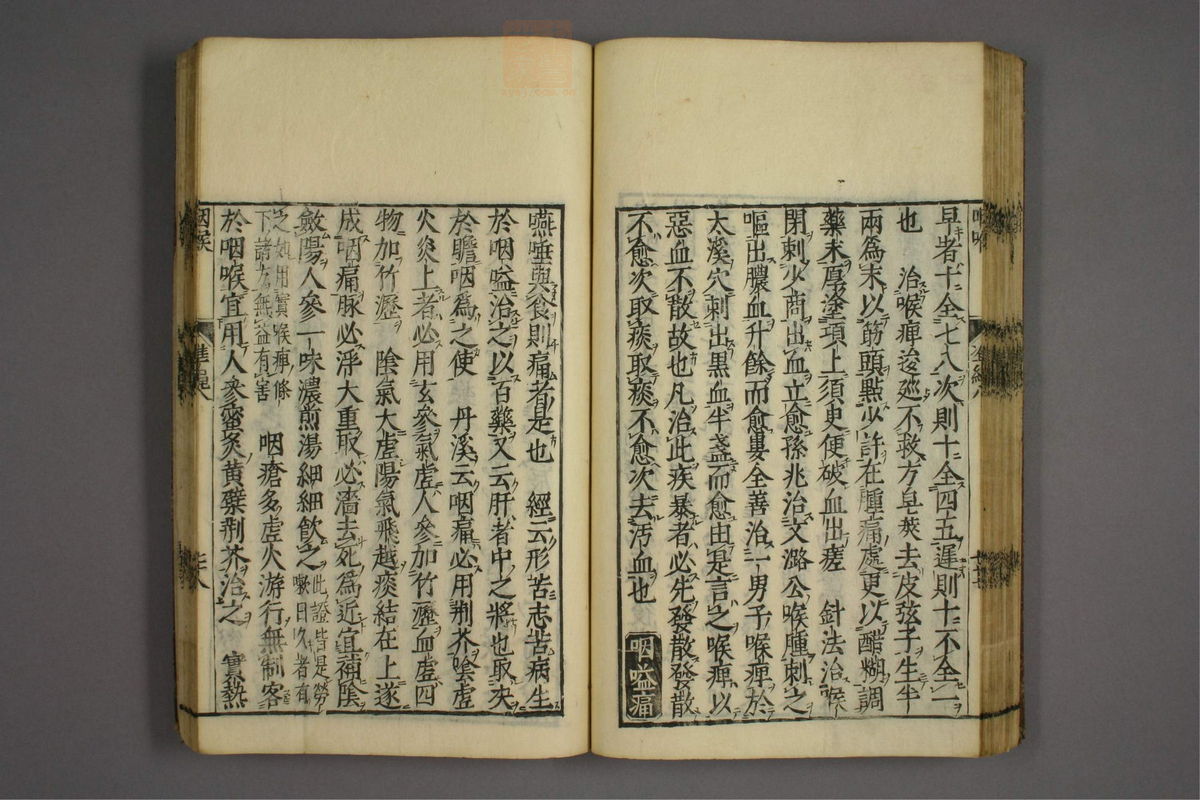 早者十全七八次則十全四五遲則十不全一
也　治喉痺逡廵不救方皂莢去皮弦子生半
兩為末以筯頭點少許在腫痛處更以醋糊調
藥末厚塗項上須臾便破血出瘥　針法治喉
閉刺少商出血立愈孫兆治文潞公喉腫刺之
嘔出膿血升餘而愈婁全善治一男子喉痺於
太溪穴刺出黑血半盞而愈由是言之喉痺以
惡血不散故也凡治此疾暴者必先發散發散
不愈次取痰取痰不愈次去汚血也　咽嗌痛
嚥唾與食則痛者是也　經云形苦志苦病生
於咽嗌治之以百藥又云肝者中之將也取决
於膽咽為之使　丹溪云咽痛必用荆芥陰虛
火炎上者必用玄參氣虛人參加竹瀝血虛四
物加竹瀝　陰氣大虛陽氣飛越痰結在上遂
成咽痛脉必浮大重取必濇去死為近宜補陰
斂陽人參一味濃煎湯細細飲之此證皆是勞
嗽日久者有
之如用實喉痺條
下諸方無益有害　咽瘡多虛火游行無制客
於咽喉宜用人參蜜炙黄蘗荆芥治之　實熱
咽喉
七八